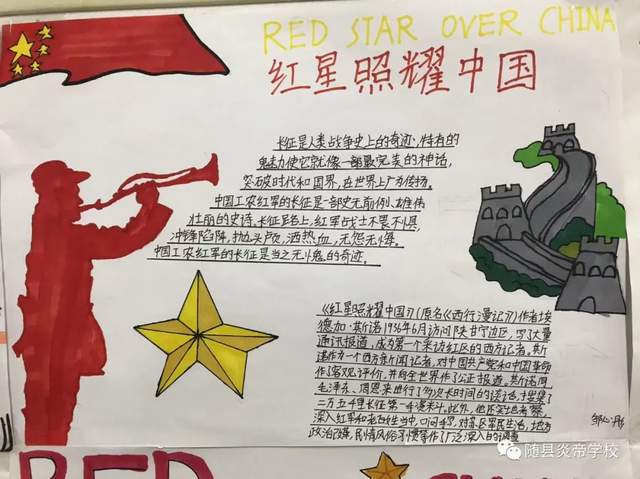 RED STAR OVER CHINA
红星照耀中国
长征是人类战争史上的奇迹,特有的
魅力使它就像一部最完美的神话,
突破时代和国界,在世界上广为传扬。
中国工农红军的长征是一部史无前例、雄伟
壮丽的史诗。长征路上,红军战士不畏不惧,
冲锋陷阵,抛头颅,洒热血,无怨无悔。
中国工农红军的长征是当之无愧的奇迹。
《红星照耀中国》(原名《西行漫记》)作者埃
德加·斯诺1936年6月访问陕甘宁边区,写了大量
通讯报道,成为第一个采访红区的西方记者,斯
诺作为一个西方新闻记者,对中国共产党和中国革命
作了客观评价,并向全世界作了公正报道。斯诺同
毛泽东、周恩来进行了多次长时间的谈话,搜集了
二万五千里长征第一手资料。此外,他还实地考察,
深入红军和老百姓当中,口问手写,对苏区军民生活,地方
政治改革,民情风俗习惯等作了广泛深入的调查
随县炎帝学校
RED